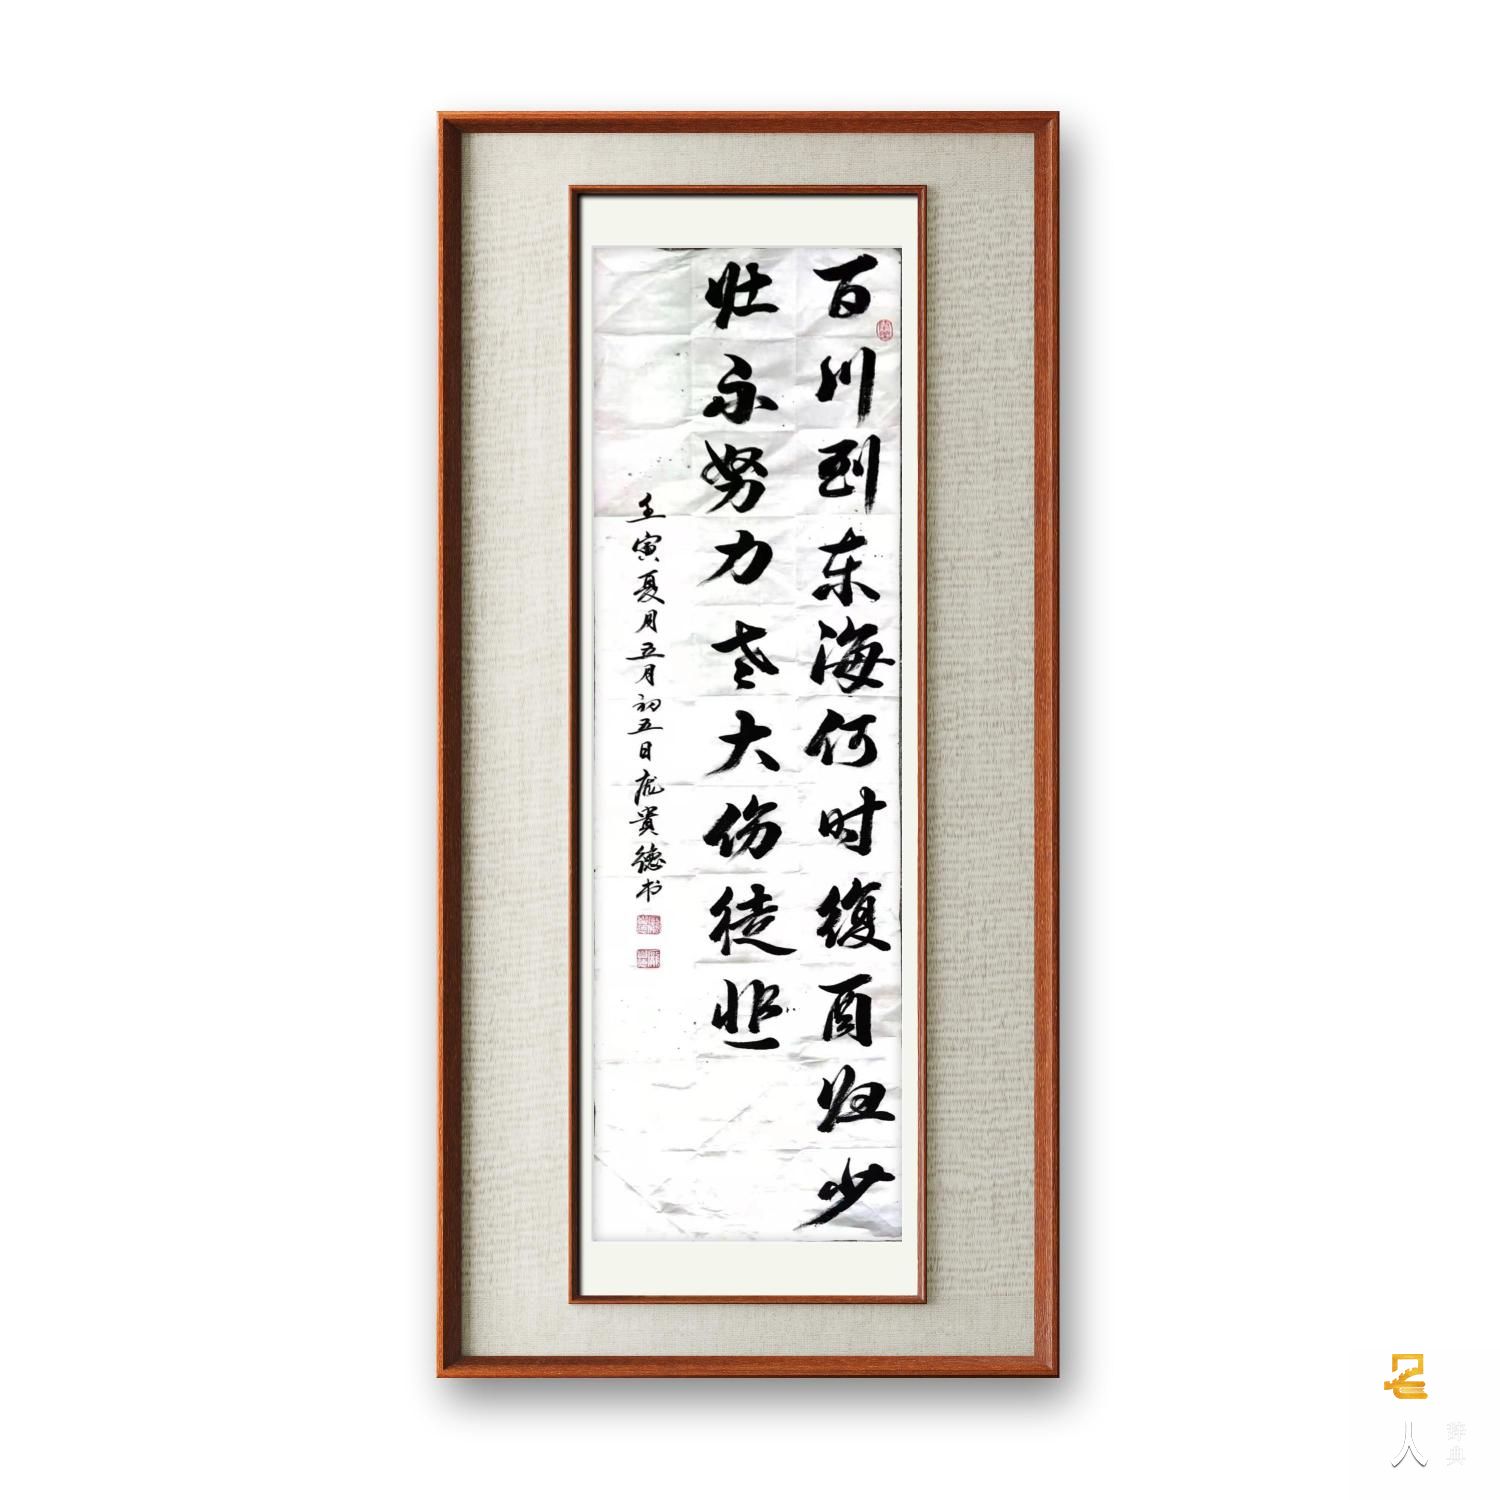 百川到东海何时復西归少
壮不努力老大伤徒悲
壬寅夏月五月初五日庞貴德书
名人
辞典